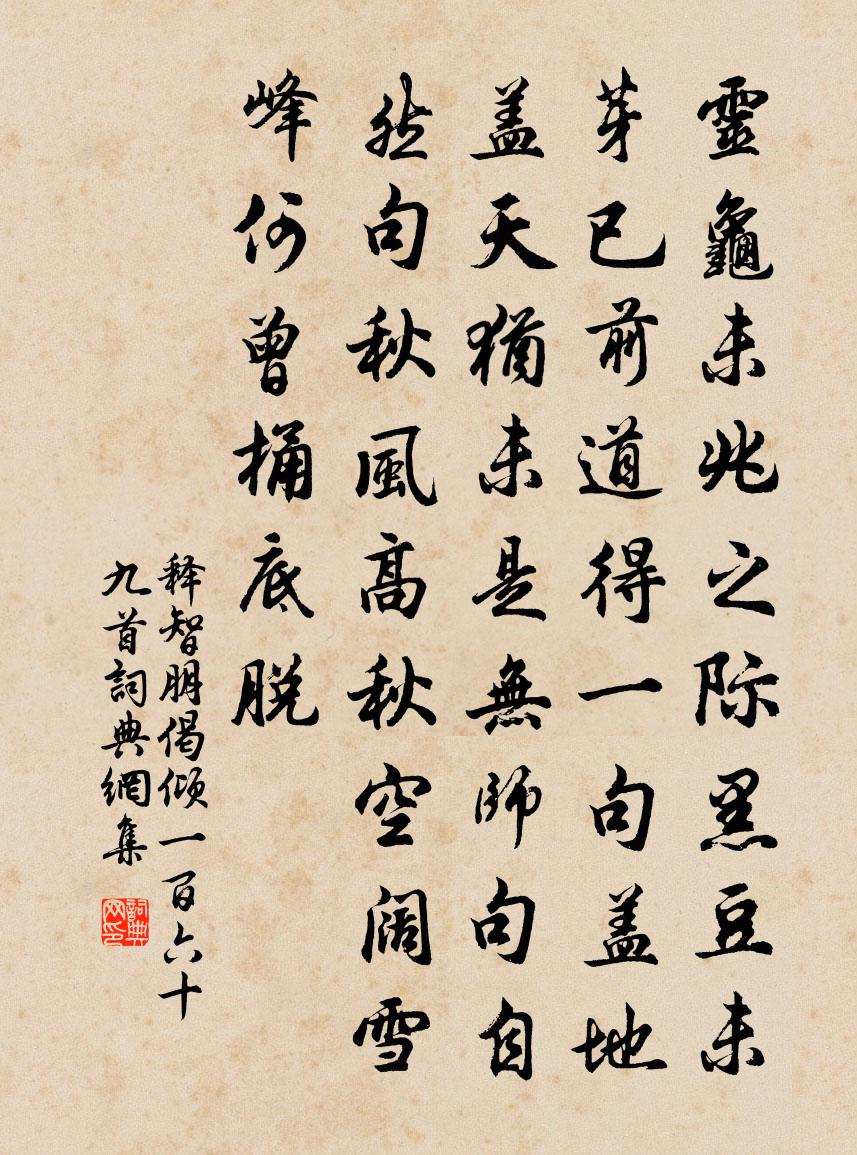 靈龜未兆之际黑豆未
芽已前道得一句盖地
盖天猶未是無師句自
然句秋風高秋空阔雪
峰何曾桶底脱
释智朋偈倾一百六十
九首詞典網集
詞典网印